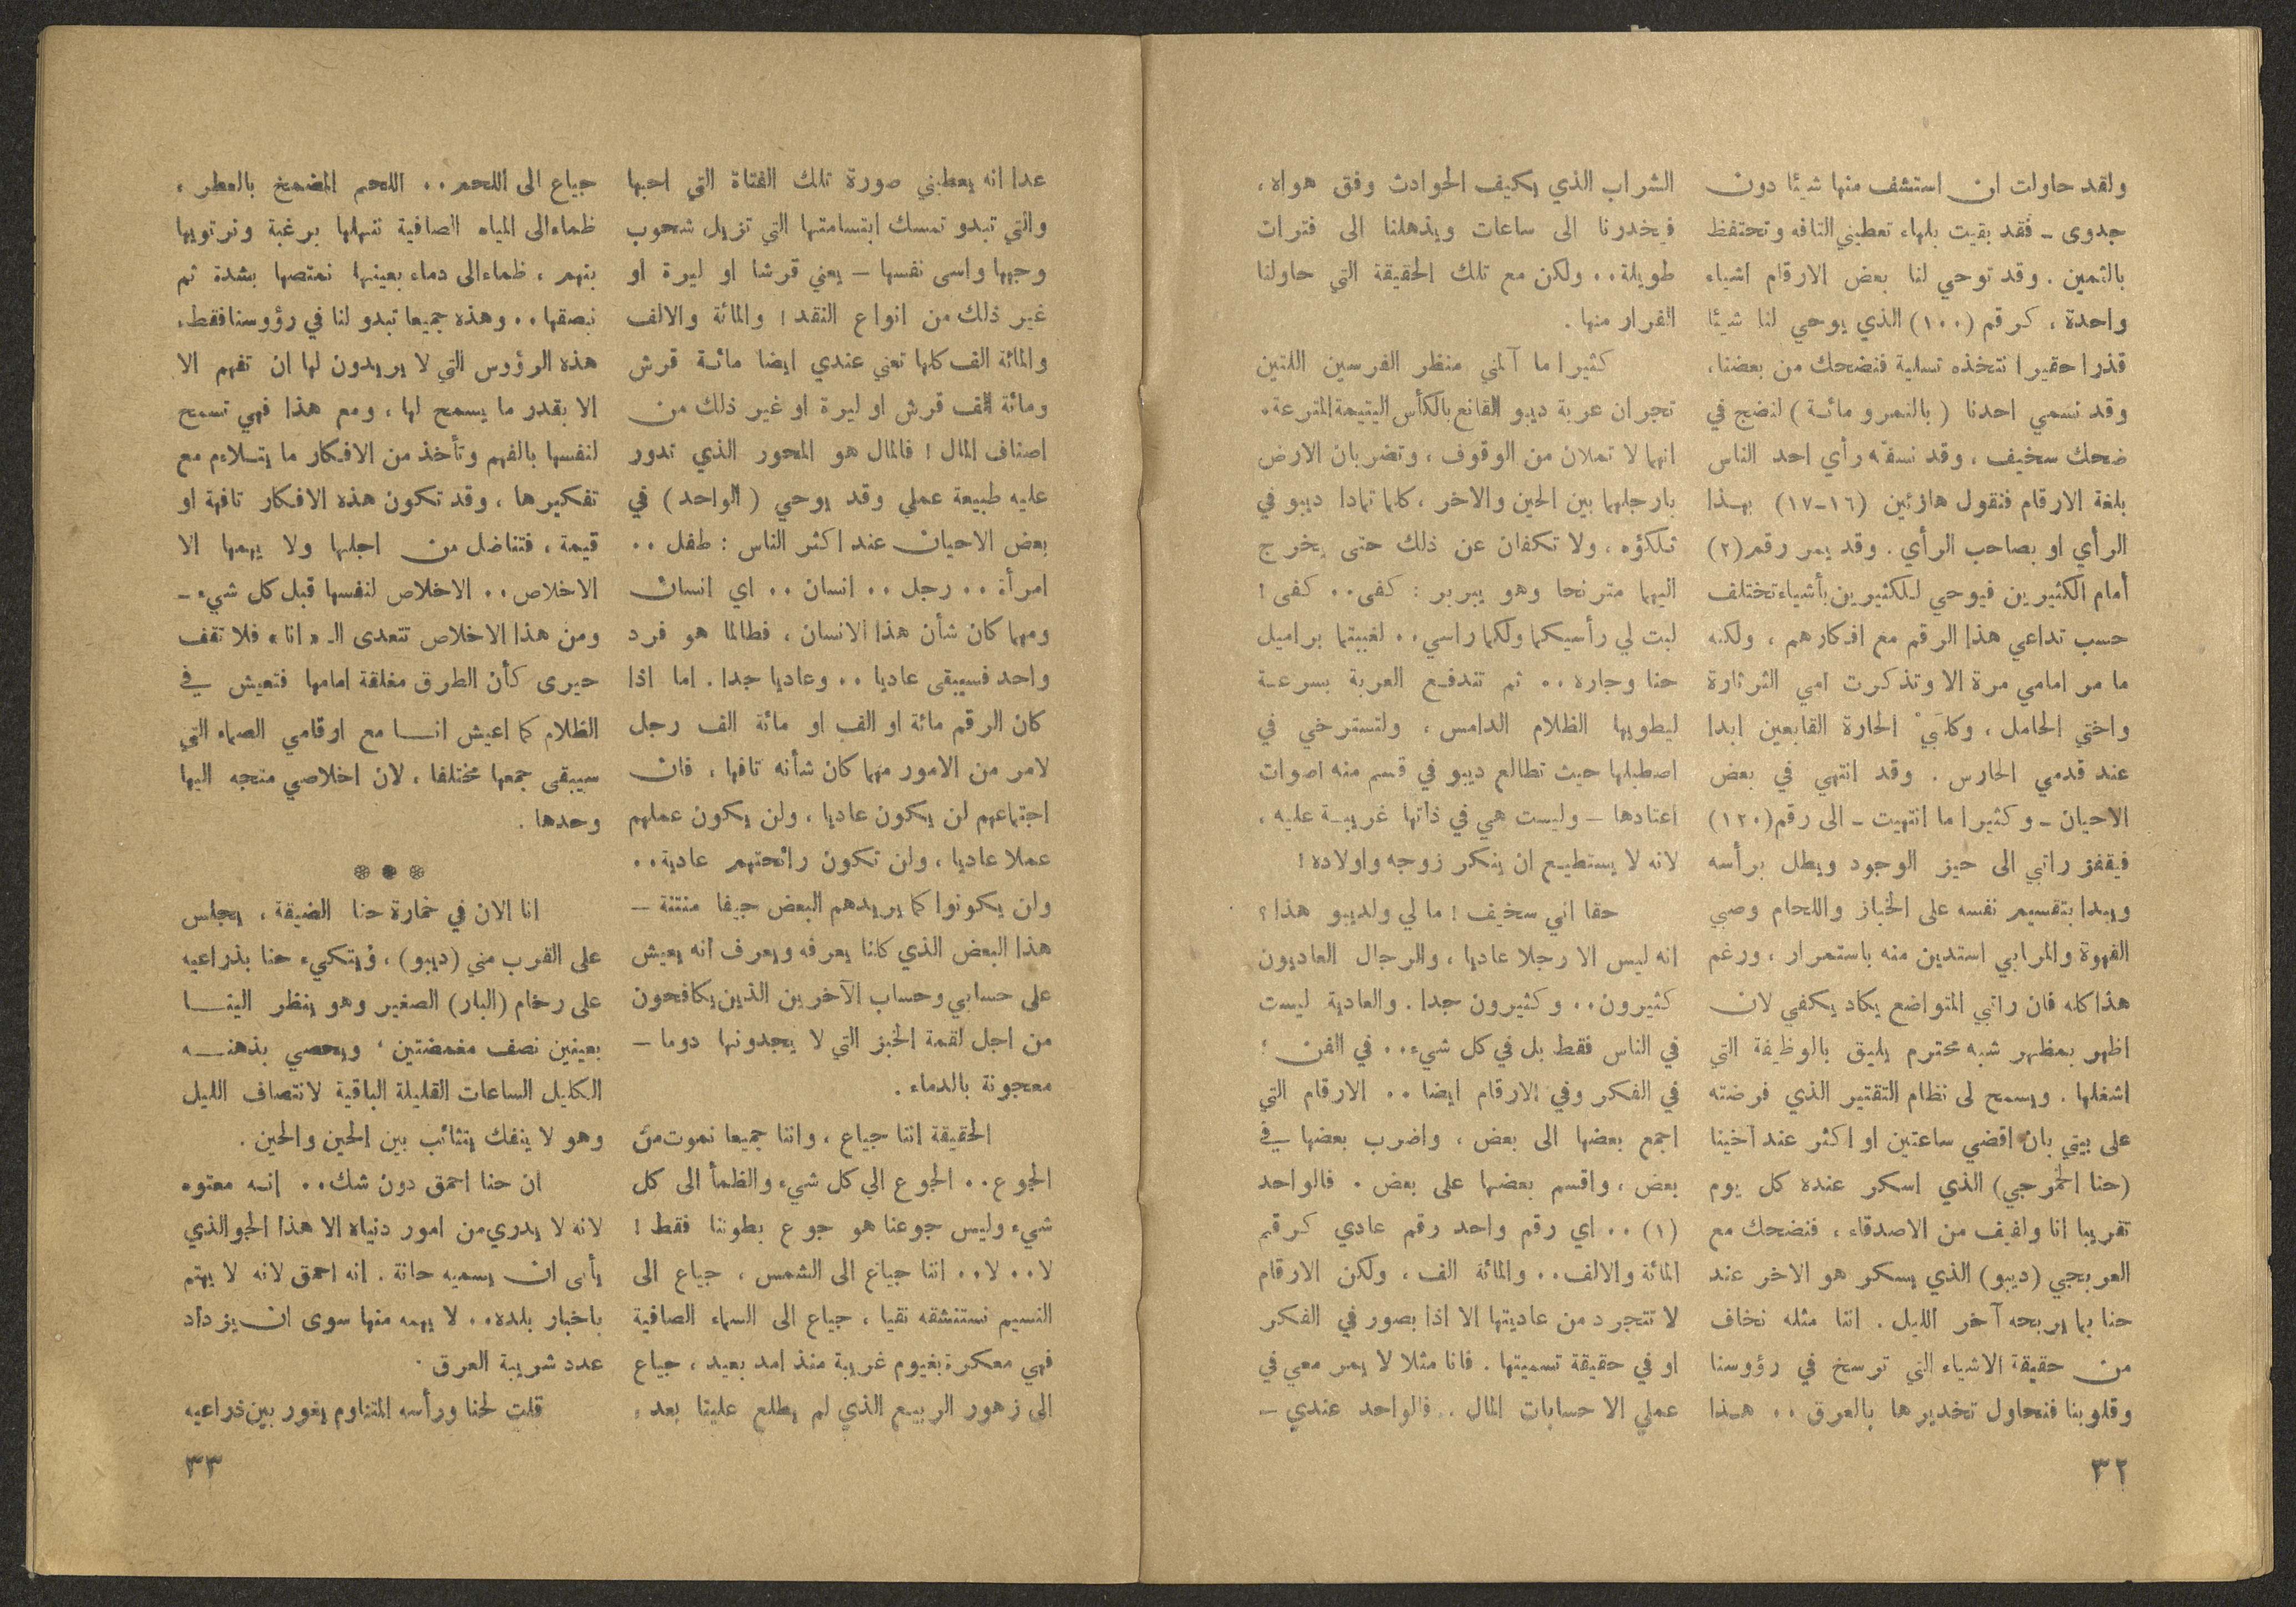 ولقد حاولت ان استشف منها شيئا دون
جدوى ـ فقد بقيت بلهاء تعطيني التافه وتحتفظ
بالثمين . وقد توحي لنا بعض الارقام اشياء
واحدة ، كرقم (١٠٠) الذي يوحي لنا شيئا
قذرا حقيرا نتخذه تسلية فنضحك من بعضنا ،
وقد نسمي احدنا ( بالنمرو مائـة ) لنضج في
ضحك سخيف ، وقد نسفّه رأي احد الناس
بلغة الارقام فنقول هازئين (١٦-١٧) بهـذا
الرأي او بصاحب الرأي . وقد يمر رقم (٢)
أمام الكثيرين فيوحي للكثيرين بأشياء تختلف
حسب تداعي هذا الرقم مع افكارهم ، ولكنه
ما مر امامي مرة الا وتذكرت امي الثرثارة
واختي الحامل ، وكلبَيْ الحارة القابعين ابدا
عند قدمي الحارس . وقد انتهي في بعض
الاحيان ـ وكثيرا ما انتهيت ـ الى رقم (١٢٠)
فيقفز راتبي الى حيز الوجود ويطل برأسه
ويبدا بتقسيم نفسه على الخباز واللحام وصبي
القهوة والمرابي استدين منه باستمرار ، ورغم
هذا كله فان راتبي المتواضع يكاد يكفي لان
اظهر بمظهر شبه محترم يليق بالوظيفة التي
اشغلها . ويسمح لى نظام التقتير الذي فرضته
على بيتي بان اقضي ساعتين او اكثر عند اخينا
(حنا الخمرجي) الذي اسكر عنده كل يوم
تقريبا انا ولفيف من الاصدقاء ، فنضحك مع
العربجي (ديبو) الذي يسكر هو الاخر عند
حنا بما يربحه آخر الليل . اننا مثله نخاف
من حقيقة الاشياء التي ترسخ في رؤوسنا
وقلوبنا فنحاول تخديرها بالعرق .. هـذا
الشراب الذي يكيف الحوادث وفق هواه ،
فيخدرنا الى ساعات ويذهلنا الى فترات
طويلة .. ولكن مع تلك الحقيقة التي حاولنا
الفرار منها .
كثيرا ما آلمني منظر الفرسين اللتين
تجران عربة ديبو القانع بالكأس اليتيمة المترعة .
انهما لا تملان من الوقوف ، وتضربان الارض
بارجلهما بين الحين والاخر ، كلما تمادا ديبو في
تلكؤه ، ولا تكفان عن ذلك حتى يخرج
اليهما مترنحا وهو يبربر : كفى .. كفى !
ليت لي رأسيكما ولكما راسي .. لغببتما براميل
حنا وجاره .. ثم تندفـع العربة بسرعـة
ليطويها الظلام الدامس ، ولتسترخي في
اصطبلها حيث تطالع ديبو في قسم منه اصوات
اعتادها ـ وليست هي في ذاتها غريبـة عليه ،
لانه لا يستطيـع ان ينكر زوجه واولاده !
حقا اني سخيف ! ما لي ولديبو هذا ؟
انه ليس الا رجلا عاديا ، والرجال العاديون
كثيرون .. وكثيرون جدا . والعادية ليست
في الناس فقط بل في كل شيء .. في الفن ؛
في الفكر وفي الارقام ايضا .. الارقام التي
اجمع بعضها الى بعض ، واضرب بعضها في
بعض ، واقسم بعضها على بعض . فالواحد
(١) .. اي رقم واحد رقم عادي كرقم
المائة والالف .. والمائة الف ، ولكن الارقام
لا تتجرد من عاديتها الا اذا بصور في الفكر
او في حقيقة تسميتها . فانا مثلا لا يمر معي في
عملي الا حسابات المال .. فالواحد عندي ـ
٣٢
عدا انه يعطيني صورة تلك الفتاة التي احبها
والتي تبدو تمسك ابتسامتها التي تزيل شحوب
وجهها واسى نفسها ـ يعني قرشا او ليرة او
غير ذلك من انواع النقد ! والمائة والالف
والمائة الف كلها تعني عندي ايضا مائـة قرش
ومائة الف قرش او ليرة او غير ذلك من
اصناف المال ! فالمال هو المحور الذي تدور
عليه طبيعة عملي وقد يوحي ( الواحد ) في
بعض الاحيان عند اكثر الناس : طفل ..
امرأة .. رجل .. انسان .. اي انسان
ومهما كان شأن هذا الانسان ، فطالما هو فرد
واحد فسيبقى عاديا .. وعاديا جدا . اما اذا
كان الرقم مائة او الف او مائة الف رجل
لامر من الامور مهما كان شأنه تافها ، فان
اجتماعهم لن يكون عاديا ، ولن يكون عملهم
عملا عاديا ، ولن تكون رائحتهم عادية ..
ولن يكونوا كما يريدهم البعض جيفا منتنة ـ
هذا البعض الذي كلنا يعرفه ويعرف انه يعيش
على حسابي وحساب الآخرين الذين يكافحون
من اجل لقمة الخبز التي لا يجدونها دوما ـ
معجونة بالدماء .
الحقيقة اننا جياع ، واننا جميعا نموت من
الجوع .. الجوع الي كل شيء والظمأ الى كل
شيء وليس جوعنا هو جوع بطوننا فقط !
لا .. لا .. اننا جياع الى الشمس ، جياع الى
النسيم نستنشقه نقيا ، جياع الى السماء الصافية
فهي معكرة بغيوم غريبة منذ امد بعيد ، جياع
الى زهور الربيـع الذي لم يطلع علينا بعد ،
جياع الى اللحم .. اللحم المضمخ بالعطر ،
ظماء الى المياه الصافية ننهلها برغبة ونرتويها
بنهم ، ظماء الى دماء بعينها نمتصها بشدة ثم
نبصقها .. وهذه جميعا تبدو لنا في رؤوسنا فقط .
هذه الرؤوس التي لا يريدون لها ان تفهم الا
الا بقدر ما يسمح لها ، ومع هذا فهي تسمح
لنفسها بالفهم وتأخذ من الافكار ما يتـلاءم مع
تفكيرها ، وقد تكون هذه الافكار تافهة او
قيمة ، فتناضل من اجلها ولا يهمها الا
الاخلاص .. الاخلاص لنفسها قبل كل شيء ـ
ومن هذا الاخلاص تتعدى الـ « انا » فلا تقف
حيرى كأن الطرق مغلقة امامها فتعيش في
الظلام كما اعيش انــا مع ارقامي الصماء التي
سيبقى جمعها مختلفا ، لان اخلاصي متجه اليها
وحدها .
❊ ❊ ❊
انا الان في خمارة حنا الضيقة ، يجلس
على القرب مني (ديبو) ، ويتكيء حنا بذراعيه
على رخام (البار) الصغير وهو ينظر الينــا
بعينين نصف مغمضتين ، ويحصي بذهنــه
الكليل الساعات القليلة الباقية لانتصاف الليل
وهو لا ينفك يتثائب بين الحين والحين .
ان حنا احمق دون شك .. انـه معتوه
لانه لا يدري من امور دنياه الا هذا الجو الذي
يأبى ان يسميه حانة . انه احمق لانه لا يهتم
باخبار بلده .. لا يهمه منها سوى ان يزداد
عدد شريبة العرق .
قلت لحنا ورأسه المتناوم يغور بين ذراعيه
٣٣